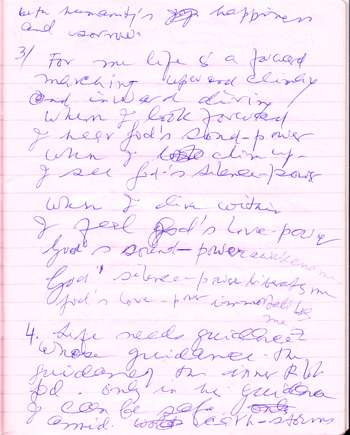 both humanity's happiness
and sorrow
3/ For me life is a forward
marching upward climbing
and inward diving
When I look forward
I hear God's sound-power
When I climb up
I see God's silence-power
When I dive within
I feel God's love-power
God's sound-power awakens me
God's silence-power liberates me
God's love-power immortalises
me
4. Life needs guidance
Whose guidance - the
guidance of the inner Pilot
God. only in his guidance
I can be safe
amid earth-storms